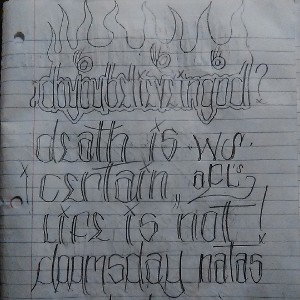 666
doyoubelieveingod?
death is
certain,,
life is not!
doomsday natas